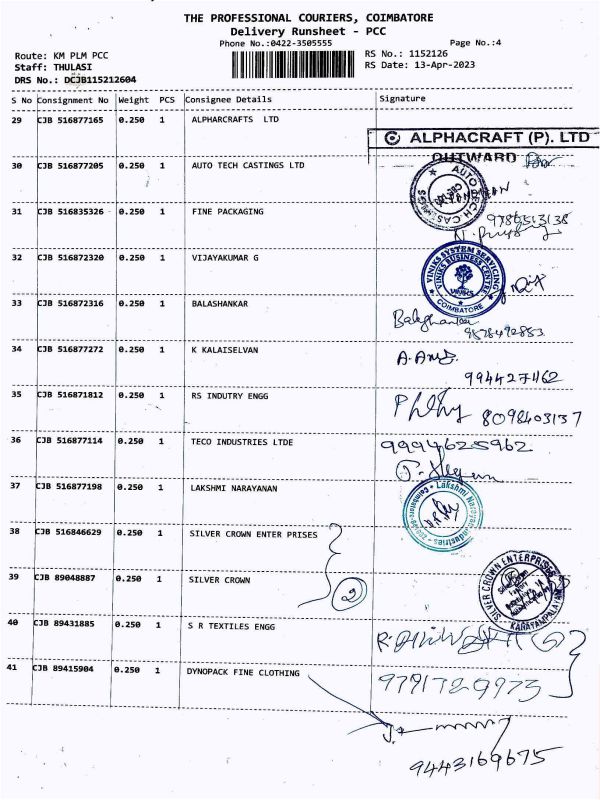 THE PROFESSIONAL COURIERS, COIMBATORE
Delivery Runsheet - PCC
Phone No.:0422-3505555 Page No.:4
Route: KM PLM PCC RS No.: 1152126
Staff: THULASI RS Date: 13-Apr-2023
DRS No.: DCJB115212604
S No Consignment No Weight PCS Consignee Details Signature
29 CJB 516877165 0.250 1 ALPHARCRAFTS LTD
ALPHACRAFT (P). LTD
OUTWARD
30 CJB 516877205 0.250 1 AUTO TECH CASTINGS LTD
31 CJB 516835326 0.250 1 FINE PACKAGING
9786513138
32 CJB 516872320 0.250 1 VIJAYAKUMAR G
VINIKS SYSTEM SERVICING
VINIKS BUSINESS CENTRE
VINIKS
COIMBATORE
33 CJB 516872316 0.250 1 BALASHANKAR
9578492853
34 CJB 516877272 0.250 1 K KALAISELVAN
994427462
35 CJB 516871812 0.250 1 RS INDUTRY ENGG
8098403137
36 CJB 516877114 0.250 1 TECO INDUSTRIES LTDE
9994625962
37 CJB 516877198 0.250 1 LAKSHMI NARAYANAN
38 CJB 516846629 0.250 1 SILVER CROWN ENTER PRISES
39 CJB 89048887 0.250 1 SILVER CROWN
2
SILVER CROWN ENTERPRISES
KARAYANPALAYAM
40 CJB 89431885 0.250 1 S R TEXTILES ENGG
41 CJB 89415904 0.250 1 DYNOPACK FINE CLOTHING
9791729973
9443169675